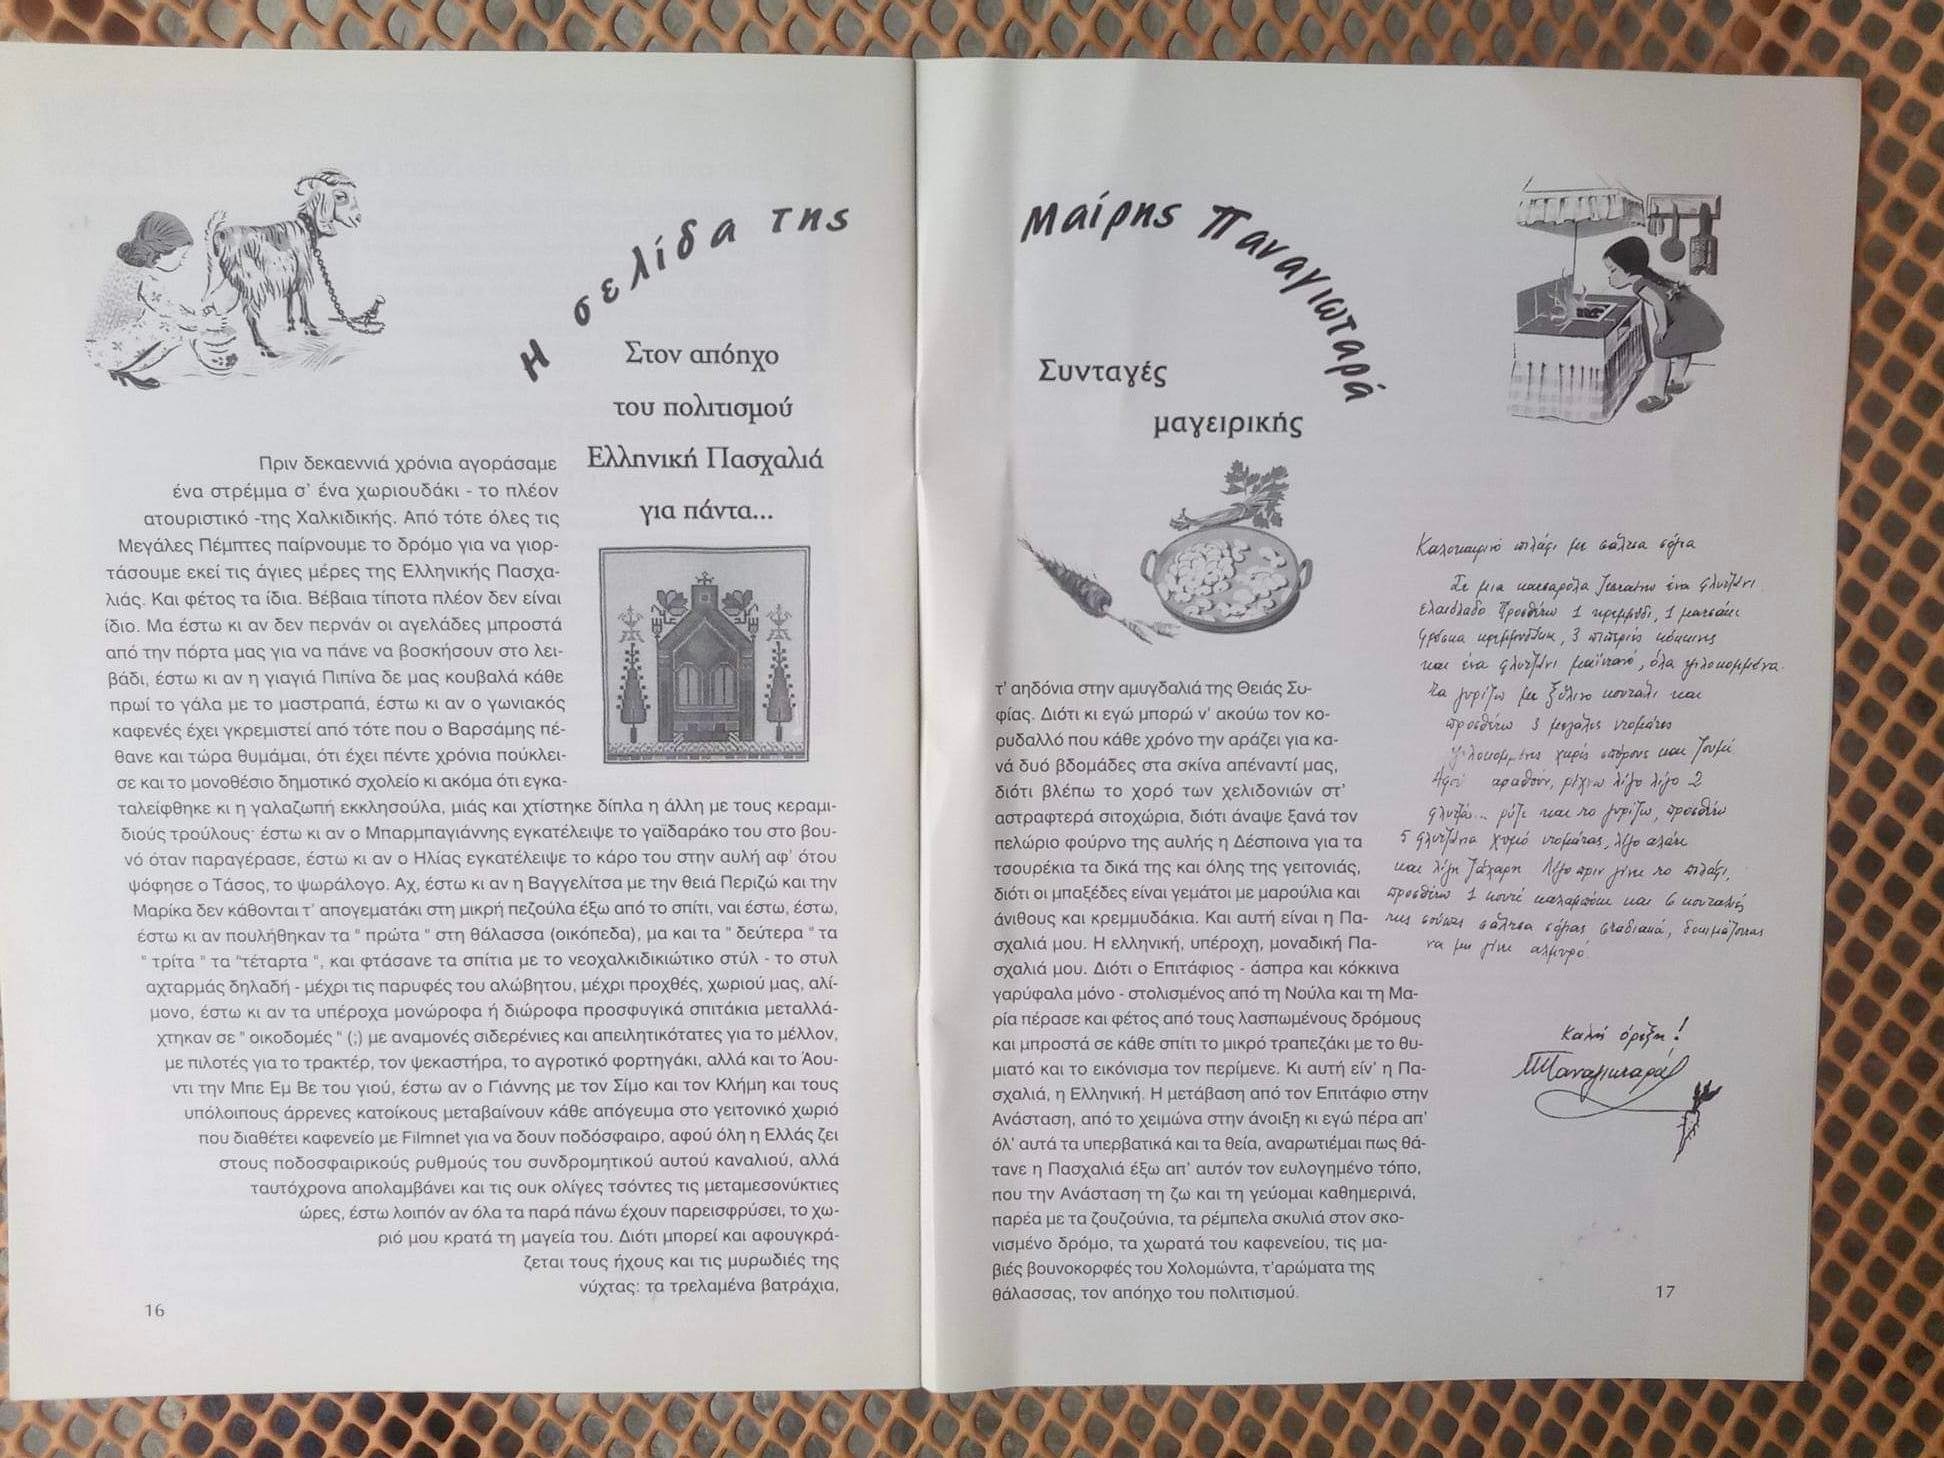 Η σελίδα της
Στον απόηχο
του πολιτισμού
Ελληνική Πασχαλιά
για πάντα...
Πριν δεκαεννιά χρόνια αγοράσαμε
ένα στρέμμα σ' ένα χωριουδάκι - το πλέον
ατουριστικό -της Χαλκιδικής. Από τότε όλες τις
Μεγάλες Πέμπτες παίρνουμε το δρόμο για να γιορ-
τάσουμε εκεί τις άγιες μέρες της Ελληνικής Πασχα-
λιάς. Και φέτος τα ίδια. Βέβαια τίποτα πλέον δεν είναι
ίδιο. Μα έστω κι αν δεν περνάν οι αγελάδες μπροστά
από την πόρτα μας για να πάνε να βοσκήσουν στο λει-
βάδι, έστω κι αν η γιαγιά Πιπίνα δε μας κουβαλά κάθε
πρωί το γάλα με το μαστραπά, έστω κι αν ο γωνιακός
καφενές έχει γκρεμιστεί από τότε που ο Βαρσάμης πέ-
θανε και τώρα θυμάμαι, ότι έχει πέντε χρόνια πούκλει-
σε και το μονοθέσιο δημοτικό σχολείο κι ακόμα ότι εγκα-
ταλείφθηκε κι η γαλαζωπή εκκλησούλα, μιάς και χτίστηκε δίπλα η άλλη με τους κεραμι-
διούς τρούλους· έστω κι αν ο Μπαρμπαγιάννης εγκατέλειψε το γαϊδαράκο του στο βου-
νό όταν παραγέρασε, έστω κι αν ο Ηλίας εγκατέλειψε το κάρο του στην αυλή αφ' ότου
ψόφησε ο Τάσος, το ψωράλογο. Αχ, έστω κι αν η Βαγγελίτσα με την θειά Περιζώ και την
Μαρίκα δεν κάθονται τ' απογεματάκι στη μικρή πεζούλα έξω από το σπίτι, ναι έστω, έστω,
έστω κι αν πουλήθηκαν τα " πρώτα " στη θάλασσα (οικόπεδα), μα και τα " δεύτερα " τα
" τρίτα " τα "τέταρτα ", και φτάσανε τα σπίτια με το νεοχαλκιδικιώτικο στύλ - το στυλ
αχταρμάς δηλαδή - μέχρι τις παρυφές του αλώβητου, μέχρι προχθές, χωριού μας, αλί-
μονο, έστω κι αν τα υπέροχα μονώροφα ή διώροφα προσφυγικά σπιτάκια μεταλλά-
χτηκαν σε " οικοδομές " (;) με αναμονές σιδερένιες και απειλητικότατες για το μέλλον,
με πιλοτές για το τρακτέρ, τον ψεκαστήρα, το αγροτικό φορτηγάκι, αλλά και το Άου-
ντι την Μπε Εμ Βε του γιού, έστω αν ο Γιάννης με τον Σίμο και τον Κλήμη και τους
υπόλοιπους άρρενες κατοίκους μεταβαίνουν κάθε απόγευμα στο γειτονικό χωριό
που διαθέτει καφενείο με Filmnet για να δουν ποδόσφαιρο, αφού όλη η Ελλάς ζει
στους ποδοσφαιρικούς ρυθμούς του συνδρομητικού αυτού καναλιού, αλλά
ταυτόχρονα απολαμβάνει και τις ουκ ολίγες τσόντες τις μεταμεσονύκτιες
ώρες, έστω λοιπόν αν όλα τα παρά πάνω έχουν παρεισφρύσει, το χω-
ριό μου κρατά τη μαγεία του. Διότι μπορεί και αφουγκρά-
ζεται τους ήχους και τις μυρωδιές της
νύχτας: τα τρελαμένα βατράχια,
16
Μαίρης Παναγιωταρά
Συνταγές
μαγειρικής
τ' αηδόνια στην αμυγδαλιά της Θειάς Συ-
φίας. Διότι κι εγώ μπορώ ν' ακούω τον κο-
ρυδαλλό που κάθε χρόνο την αράζει για κα-
νά δυό βδομάδες στα σκίνα απέναντί μας,
διότι βλέπω το χορό των χελιδονιών στ'
αστραφτερά σιτοχώρια, διότι άναψε ξανά τον
πελώριο φούρνο της αυλής η Δέσποινα για τα
τσουρέκια τα δικά της και όλης της γειτονιάς,
διότι οι μπαξέδες είναι γεμάτοι με μαρούλια και
άνιθους και κρεμμυδάκια. Και αυτή είναι η Πα-
σχαλιά μου. Η ελληνική, υπέροχη, μοναδική Πα-
σχαλιά μου. Διότι ο Επιτάφιος - άσπρα και κόκκινα
γαρύφαλα μόνο - στολισμένος από τη Νούλα και τη Μα-
ρία πέρασε και φέτος από τους λασπωμένους δρόμους
και μπροστά σε κάθε σπίτι το μικρό τραπεζάκι με το θυ-
μιατό και το εικόνισμα τον περίμενε. Κι αυτή είν' η Πα-
σχαλιά, η Ελληνική. Η μετάβαση από τον Επιτάφιο στην
Ανάσταση, από το χειμώνα στην άνοιξη κι εγώ πέρα απ'
όλ' αυτά τα υπερβατικά και τα θεία, αναρωτιέμαι πως θά-
τανε η Πασχαλιά έξω απ' αυτόν τον ευλογημένο τόπο,
που την Ανάσταση τη ζω και τη γεύομαι καθημερινά,
παρέα με τα ζουζούνια, τα ρέμπελα σκυλιά στον σκο-
νισμένο δρόμο, τα χωρατά του καφενείου, τις μα-
βιές βουνοκορφές του Χολομώντα, τ'αρώματα της
θάλασσας, τον απόηχο του πολιτισμού.
Καλοκαιρινό πιλάφι με σάλτσα σόγια
Σε μια κατσαρόλα ζεσταίνω ένα φλυτζάνι
ελαιόλαδο προσθέτω 1 κρεμμύδι, 1 ματσάκι
φρέσκα κρεμμυδάκια, 3 πιπεριές κόκκινες
και ένα φλυτζάνι μαϊντανό, όλα ψιλοκομμένα.
Τα γυρίζω με ξύλινο κουτάλι και
προσθέτω 3 μεγάλες ντομάτες
ψιλοκομμένες χωρίς σπόρους και ζουμί
Αφού μαραθούν, ρίχνω λίγο λίγο 2
φλυτζ... ρύζι και το γυρίζω, προσθέτω
5 φλυτζάνια χυμό ντομάτας, λίγο αλάτι
και λίγη ζάχαρη Λίγο πριν γίνει το πιλάφι,
προσθέτω 1 κουτί καλαμπόκι και 6 κουταλιές
της σούπας σάλτσα σόγιας σταδιακά, δοκιμάζοντας
να μη γίνει αλμυρό.
Καλή όρεξη!
ΜΠαναγιωταρά
17